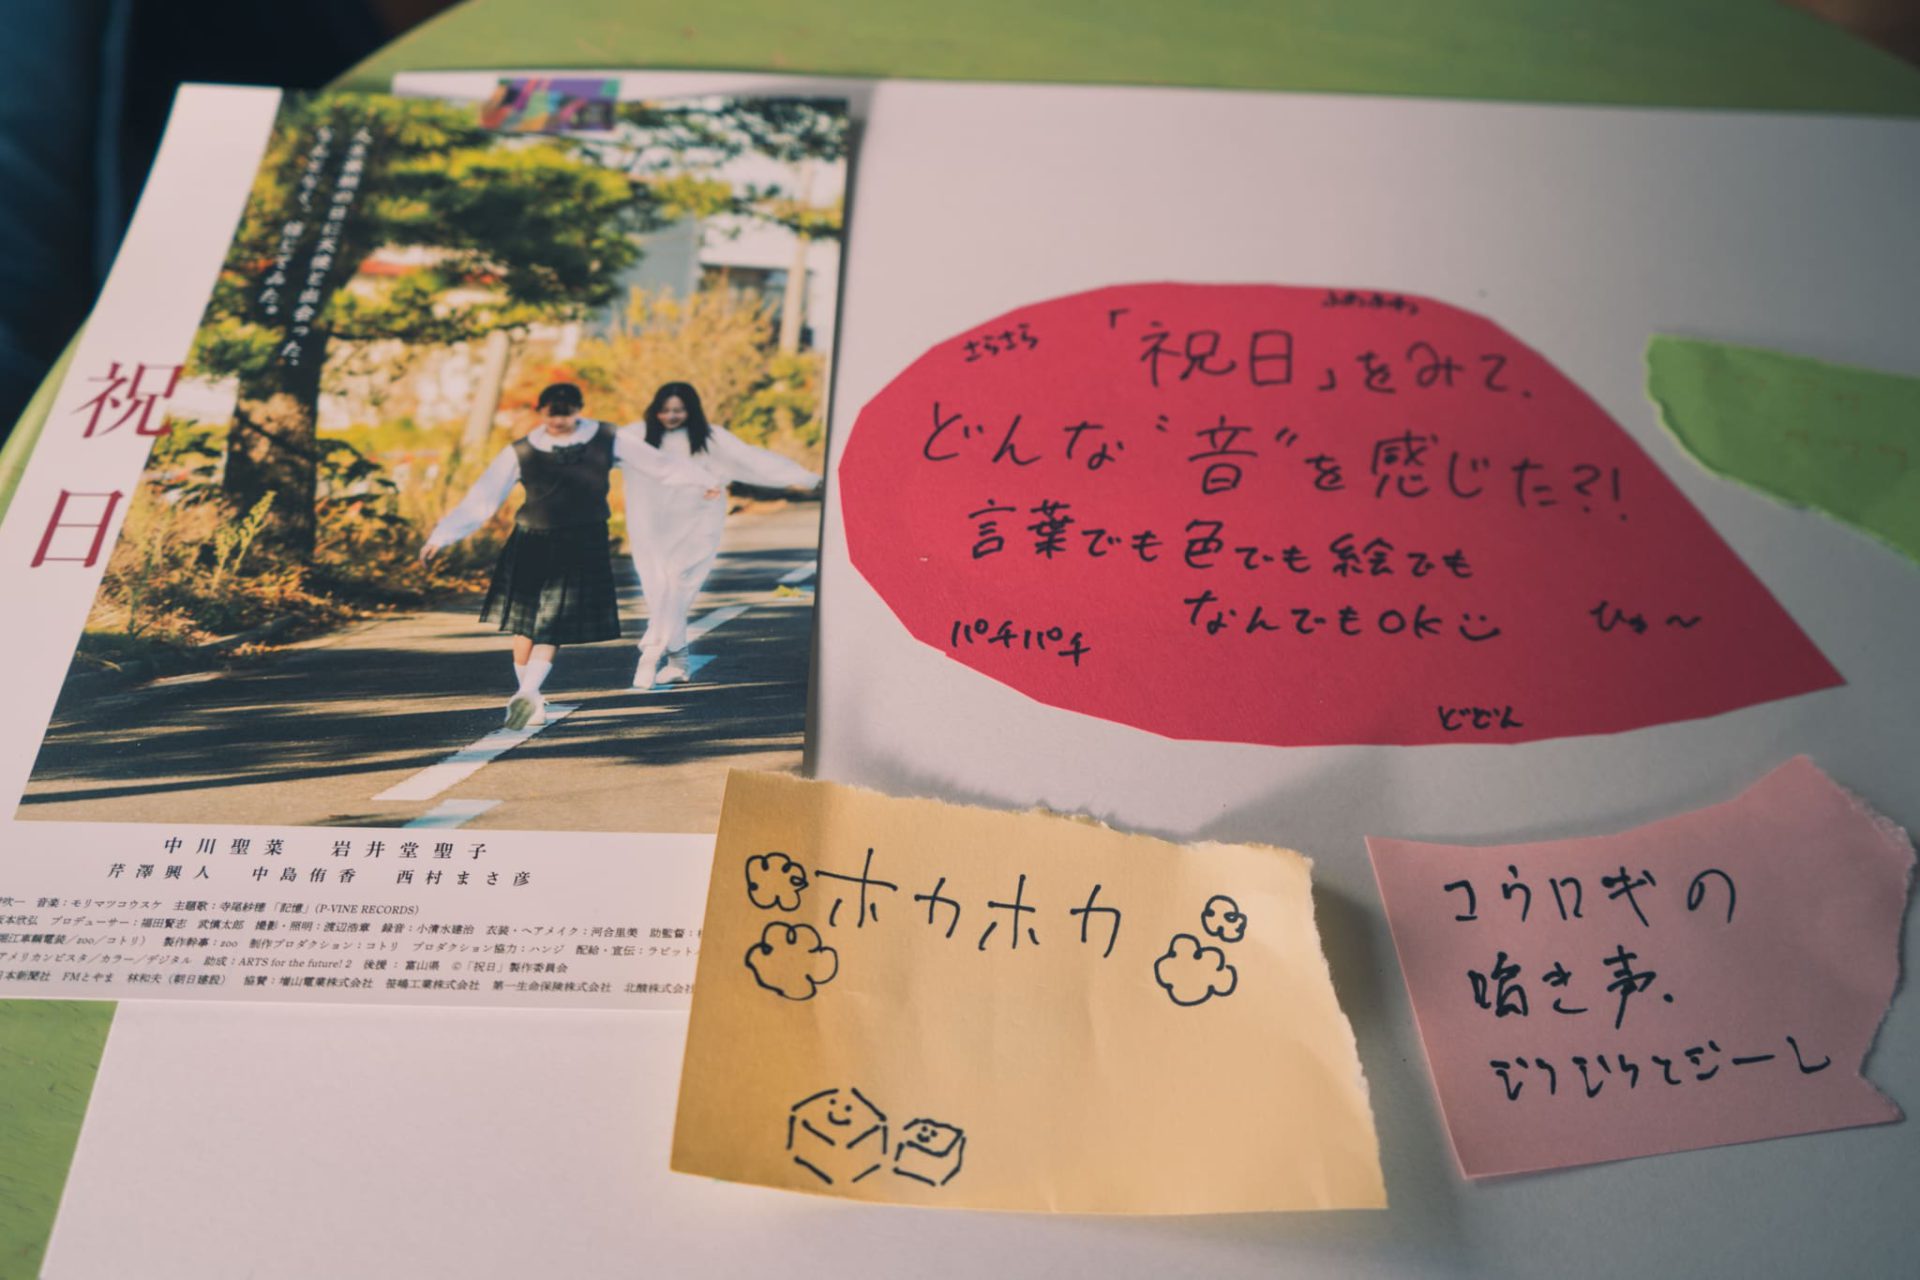 人生最期の日に天使と出会った。
なんとなく、信じてみた。
祝日
中川聖菜 岩井堂聖子
芹澤興人 中島侑香 西村まさ彦
吹一 音楽：モリマツコウスケ 主題歌：寺尾紗穂「記憶」(P-VINE RECORDS)
坂本欣弘 プロデューサー：福田賢志 武慎太郎 撮影・照明：渡辺浩章 録音：小清水建治 衣装・ヘアメイク：河合里美 助監督：
堀江車輌電装／200／コトリ） 製作幹事：200 制作プロダクション：コトリ プロダクション協力：ハンジ 配給・宣伝：ラビット
アメリカンビスタ／カラー／デジタル 助成：ARTS for the future! 2 後援：富山県 ©「祝日」製作委員会
日本新聞社 FMとやま 林和夫（朝日建設） 協賛：増山電業株式会社 笹嶋工業株式会社 第一生命保険株式会社 北酸株式会社
さらさら
ふわふわっ
「祝日」をみて、
どんな"音"を感じた?!
言葉でも色でも絵でも
なんでもOK
ひゅ〜
パチパチ
どどん
ホカホカ
コウロギの
鳴き声、